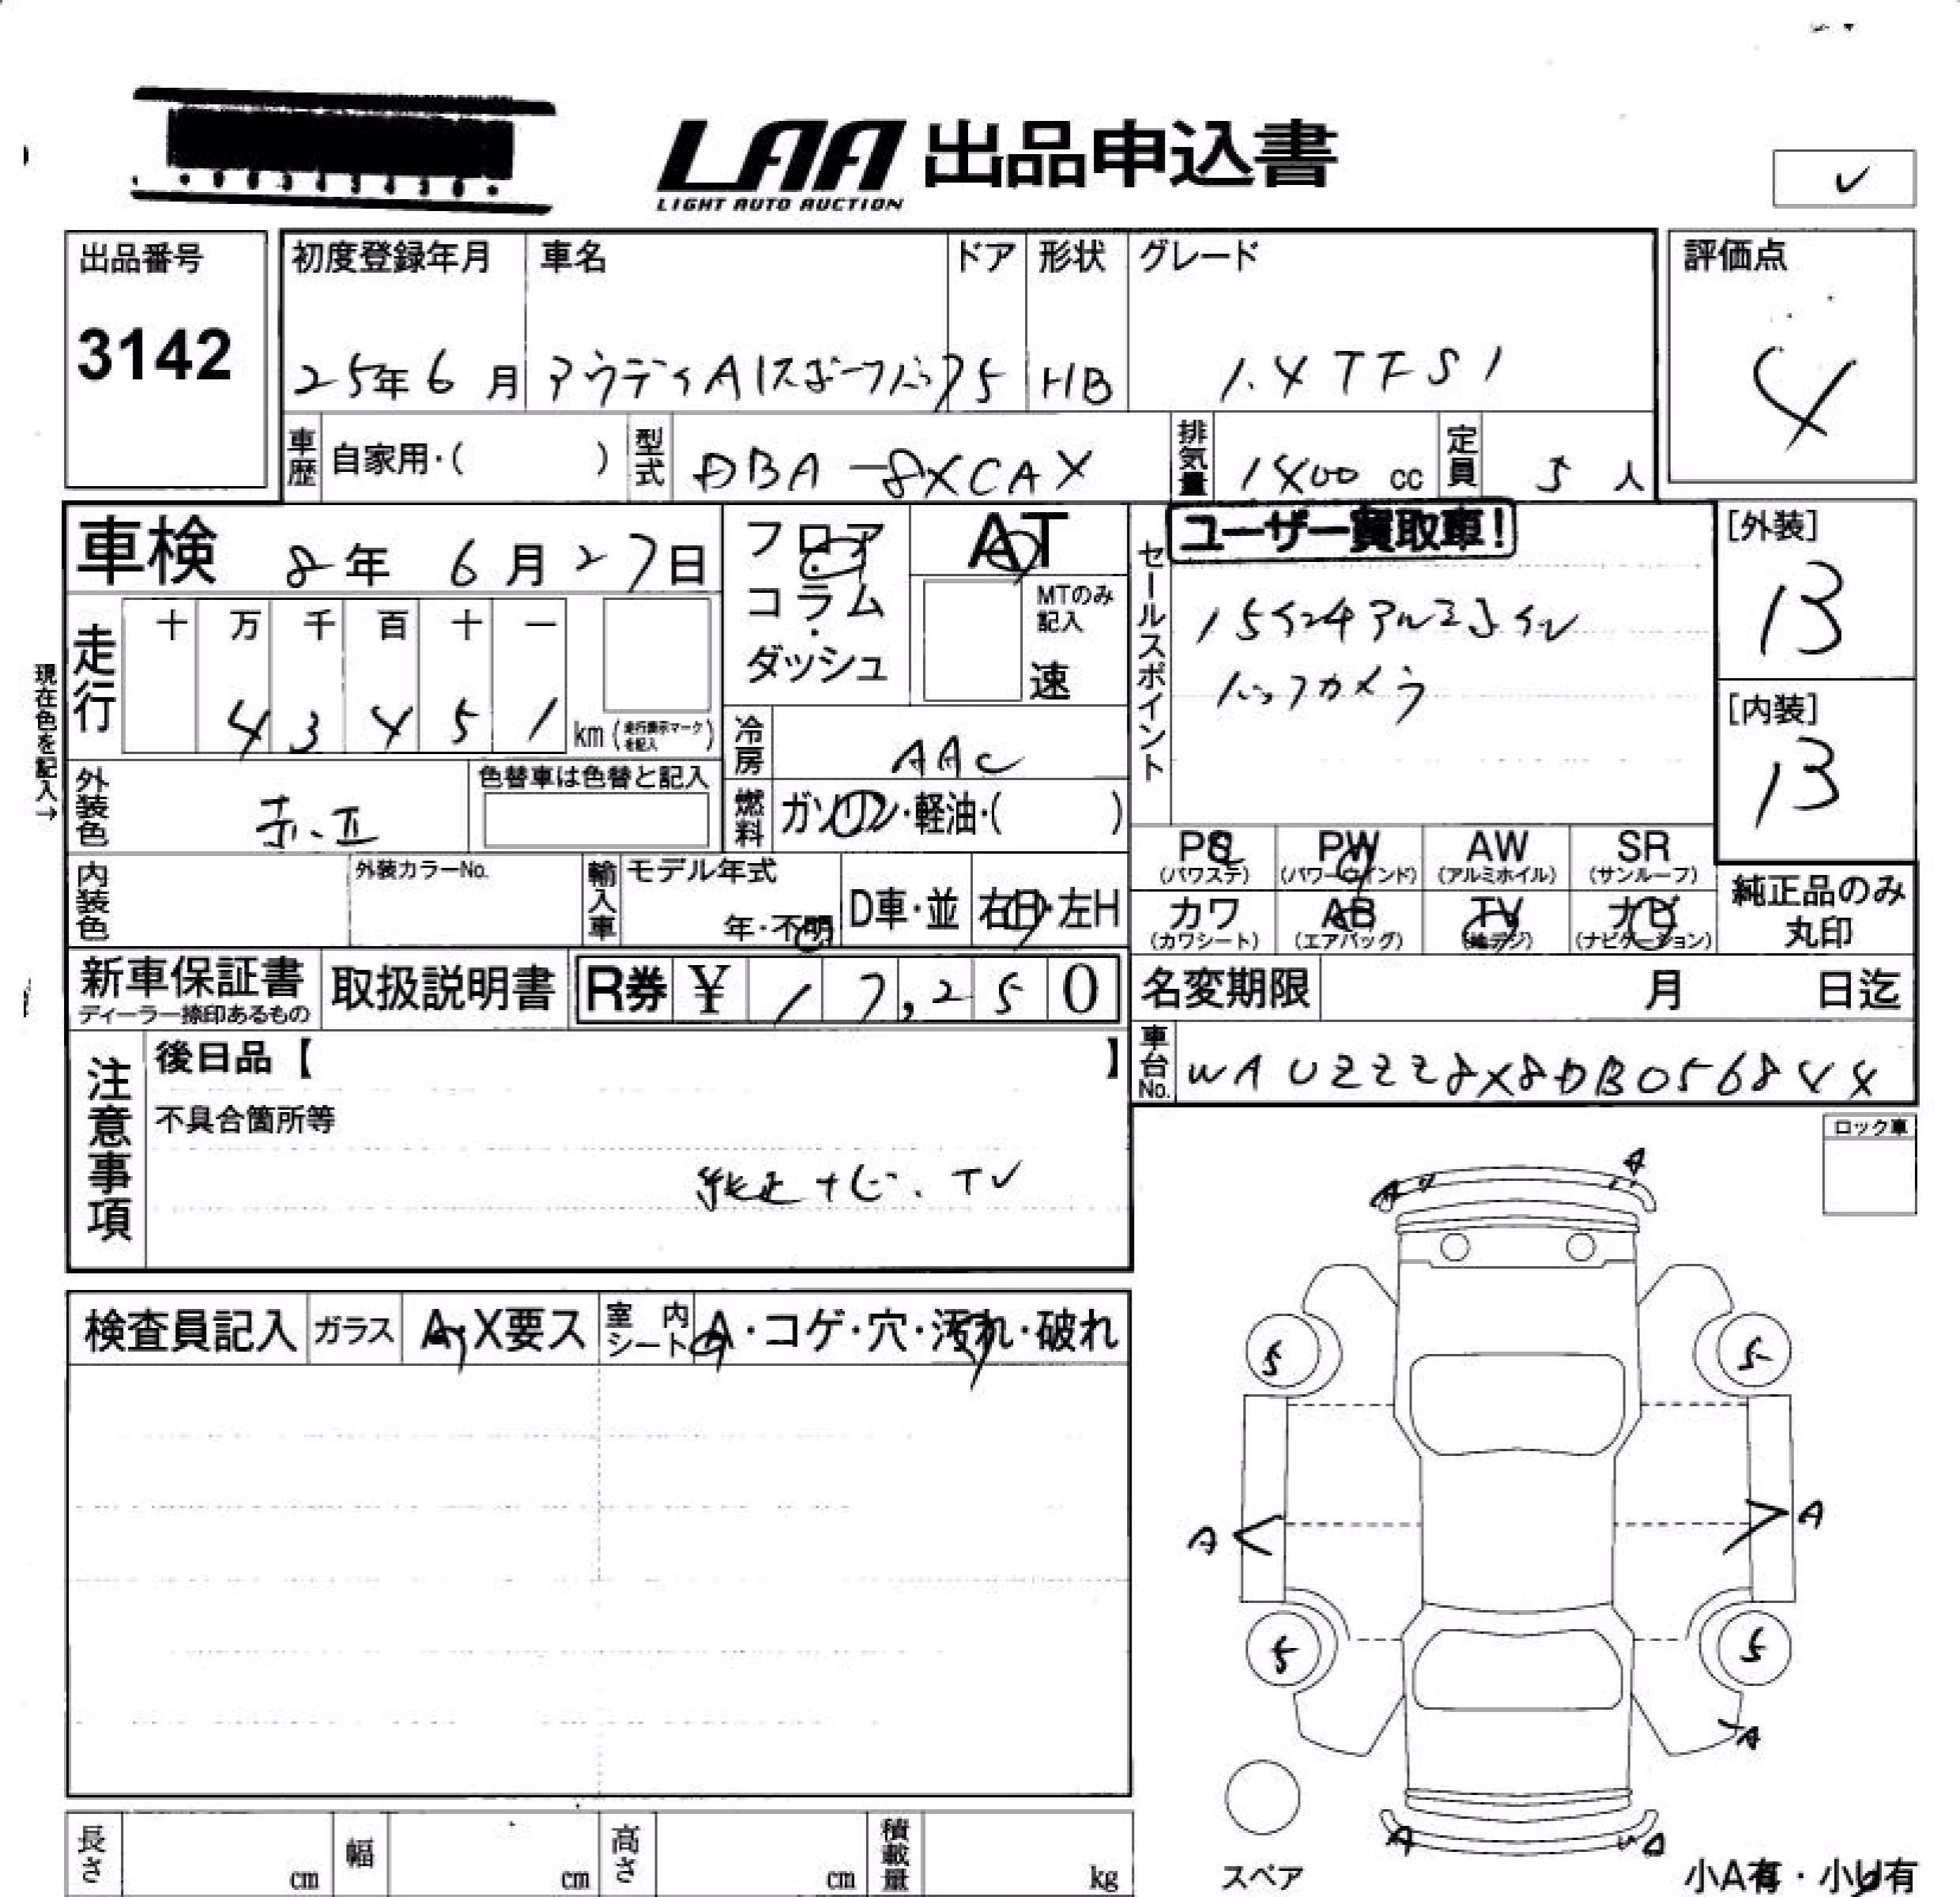 LAA 出品申込書
LIGHT AUTO AUCTION
出品番号
3142
初度登録年月
25年6月
車名
アウディA1スポーツバック
ドア
5
形状
HB
グレード
1.4TFSI
評価点
4
車歴 自家用・( )
型式 DBA-8XCAX
排気量 1400 cc
定員 5人
車検 8年6月27日
フロア・コラム・ダッシュ
AT
MTのみ記入
速
セールスポイント
ユーザー買取車!
バックカメラ
[外装]
B
[内装]
B
現在色を記入→
走行
十 万 千 百 十 一
4 3 4 5 1 km (走行表示マークを記入)
冷房 AAC
外装色
色替車は色替と記入
燃料 ガソリン・軽油・( )
PS
(パワステ)
PW
(パワーウインド)
AW
(アルミホイル)
SR
(サンルーフ)
カワ
(カワシート)
AB
(エアバッグ)
TV
(地デジ)
ナビ
(ナビゲーション)
純正品のみ丸印
内装色
外装カラーNo.
輸入車
モデル年式
年・不明
D車・並
右H・左H
新車保証書
ディーラー捺印あるもの
取扱説明書
R券 ¥ 17,250
名変期限 月 日迄
車台No. WAUZZZ8X8DB056844
注意事項
後日品【 】
不具合箇所等
純正ナビ、TV
ロック車
検査員記入
ガラス A・X要ス
室内シート A・コゲ・穴・汚れ・破れ
A
A
5
5
A
A
5
5
A
A
A
スペア
小A有・小U有
長さ cm
幅 cm
高さ cm
積載量 kg